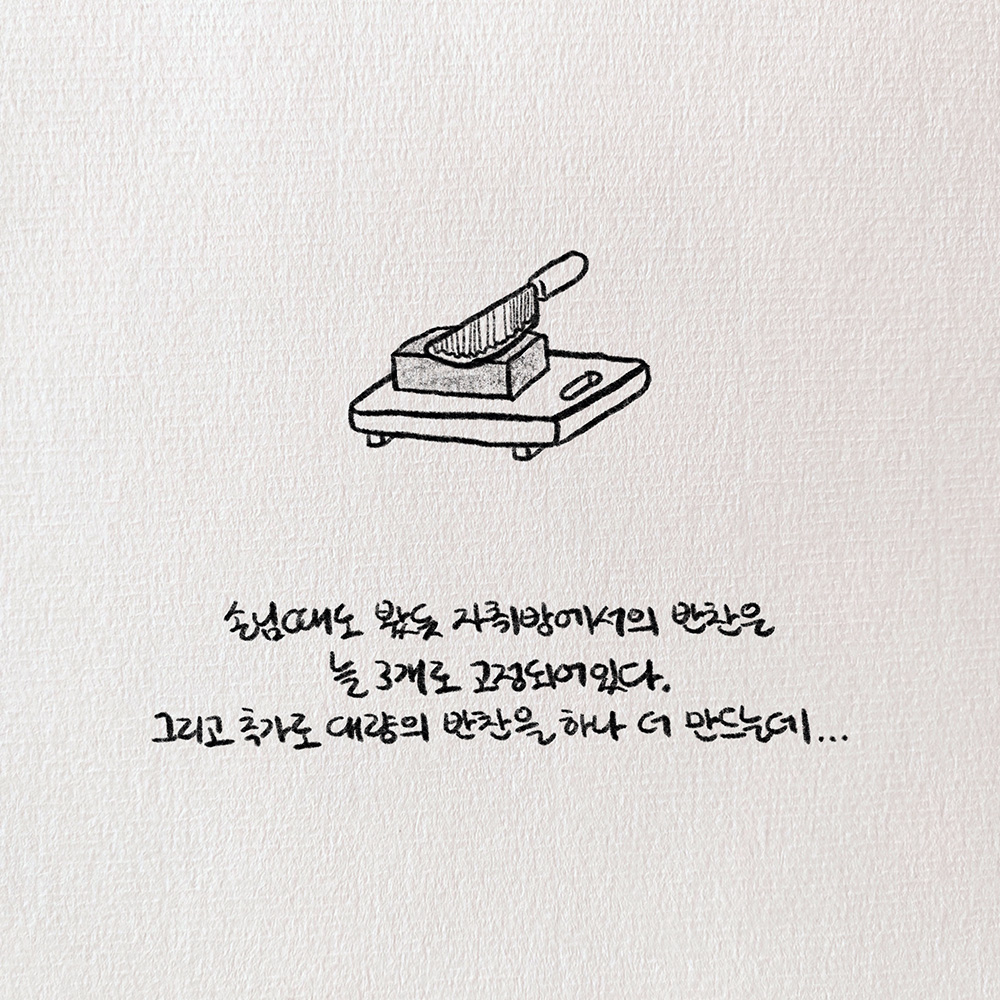 손님때도 봤듯 자취방에서의 반찬은
늘 3개로 고정되어있다.
그리고 추가로 대량의 반찬을 하나 더 만드는데...